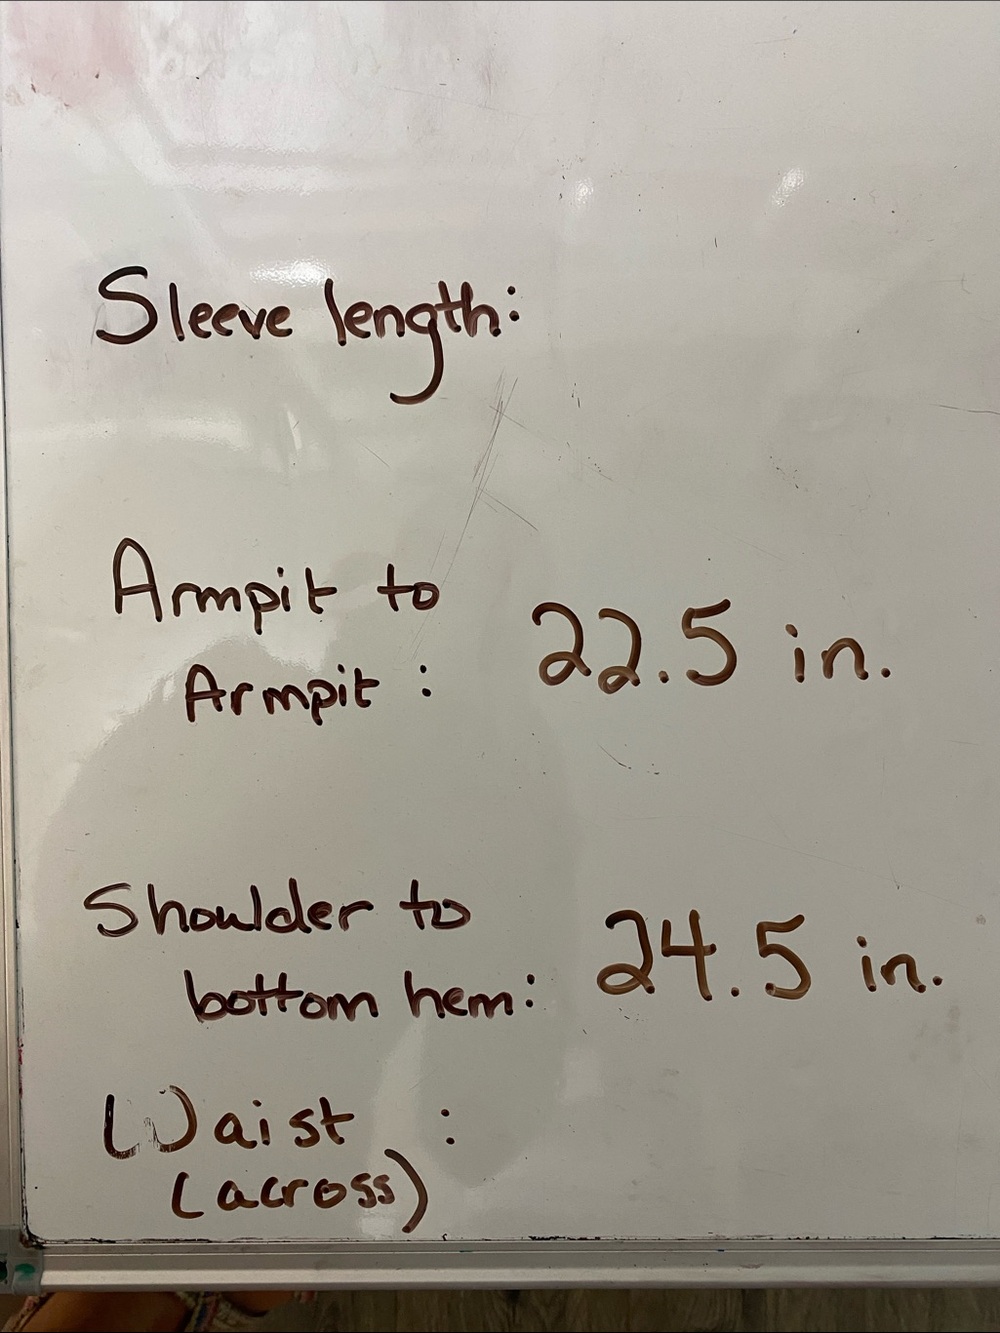 Sleeve length:
Armpit to
Armpit : 22.5 in.
Shoulder to
bottom hem: 24.5 in.
Waist :
(across)